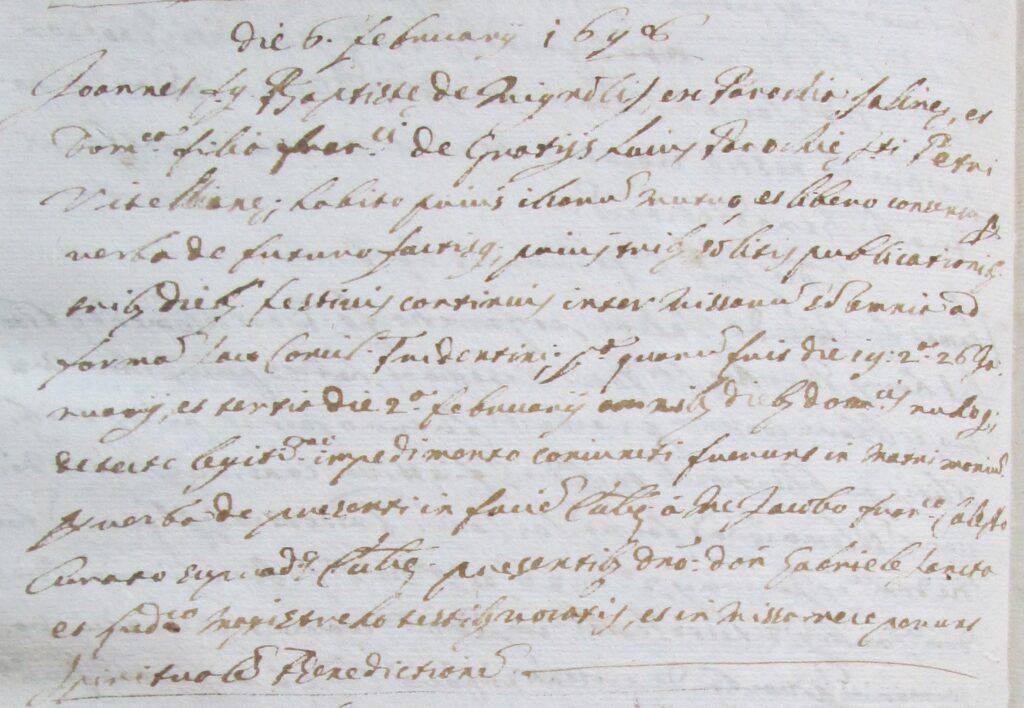 die 6. february 1698
Joannes fq. Baptistę de Mignolis, ex Parochia Salinę, et
Dom.ca filia Fran.ci de Gratijs huius Parochię S.ti Petri
Vitellianę; habito prius illarum mutuo, et libero consensu p
verba de futuro factisq; prius trib solitis publicationib
trib dieb festivis continuis inter Missarum solemnia ad
formā Sac Concil. Tridentini; quarum fuit die 19: 2.a 26 Ja-
nuary, et tertia die 2.a february omnib dieb dom.cis nulloq;
detecto legit.mo impedimento coniuncti fuerunt in Matrimoniū
p verba de presenti in facie Ecclię à Me Jacobo Fran.co
Curato suprad.ę Ecclię presentib dno: don Gabriele
et testib vocatis, et in Missa receperunt
Spiritualē Benedictionē.